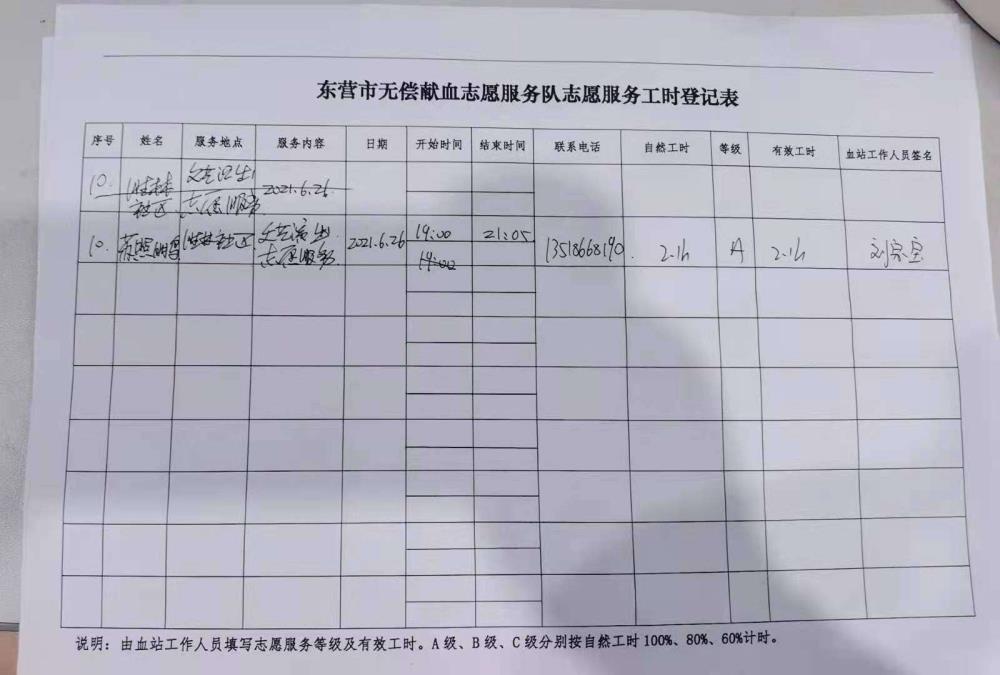 东营市无偿献血志愿服务队志愿服务工时登记表
序号 姓名 服务地点 服务内容 日期 开始时间 结束时间 联系电话 自然工时 等级 有效工时 血站工作人员签名
10. 社区 志愿服务 2021.6.26
10. 社区 文艺演出 2021.6.26 19:00 21:05 13518668190. 2.1h A 2.1h
志愿服务 19:00
说明：由血站工作人员填写志愿服务等级及有效工时。A级、B级、C级分别按自然工时100%、80%、60%计时。